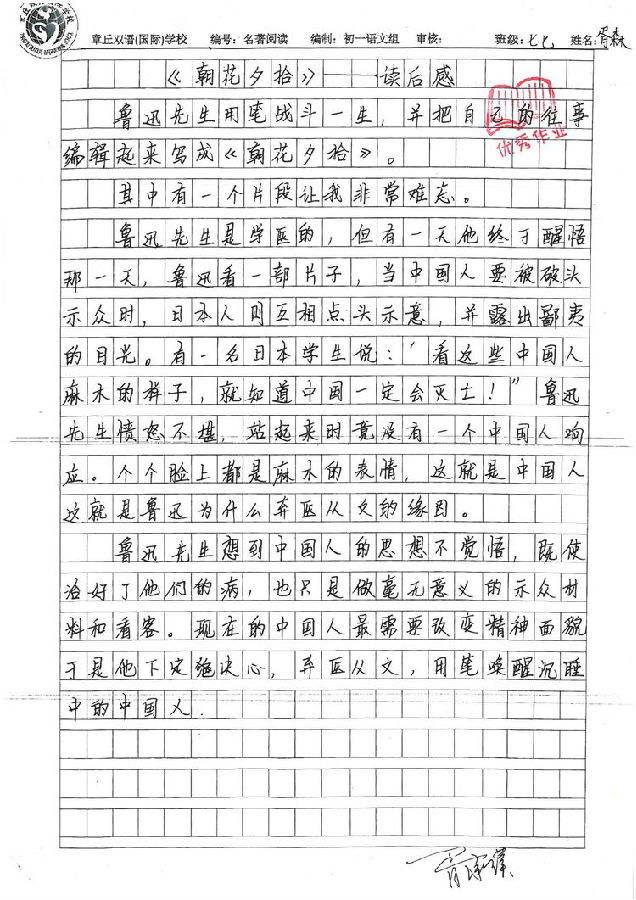 章丘双语(国际)学校 编号：名著阅读 编制：初一语文组 审核： 班级：七七 姓名：胥森
《朝花夕拾》——读后感
鲁迅先生用笔战斗一生，并把自己的往事
优秀作业
编辑起来写成《朝花夕拾》。
其中有一个片段让我非常难忘。
鲁迅先生是学医的，但有一天他终于醒悟
那一天，鲁迅看一部片子，当中国人要被砍头
示众时，日本人则互相点头示意，并露出鄙夷
的目光。有一名日本学生说：“看这些中国人
麻木的样子，就知道中国一定会灭亡！”鲁迅
先生愤怒不堪，站起来时竟没有一个中国人响
应。个个脸上都是麻木的表情，这就是中国人
这就是鲁迅为什么弃医从文的缘因。
鲁迅先生想到中国人的思想不觉悟，既使
治好了他们的病，也只是做毫无意义的示众材
料和看客。现在的中国人最需要改变精神面貌
于是他下定绝决心，弃医从文，用笔唤醒沉睡
中的中国人.